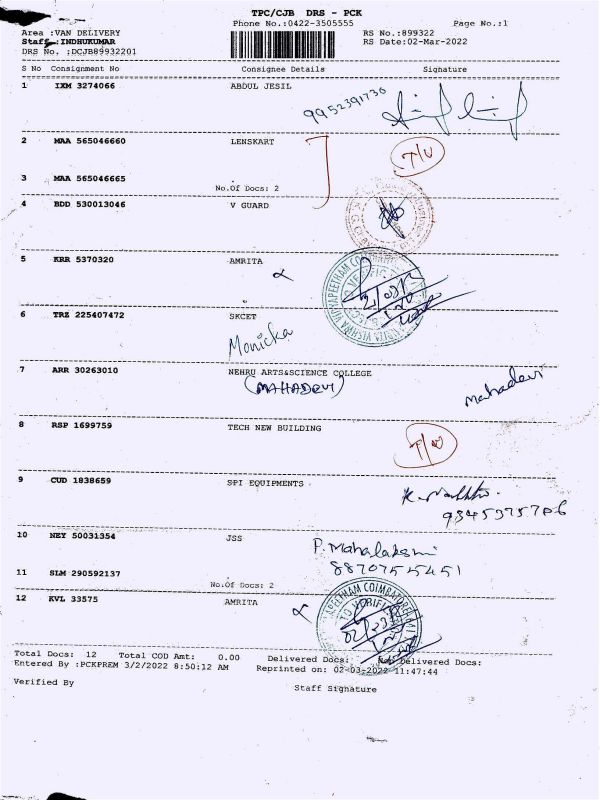 TPC/CJB DRS - PCK
Phone No.:0422-3505555 Page No.:1
Area :VAN DELIVERY RS No.:899322
Staff :INDHUKUMAR RS Date:02-Mar-2022
DRS No. :DCJB89932201
S No Consignment No Consignee Details Signature
1 IXM 3274066 ABDUL JESIL
9952391736
2 MAA 565046660 LENSKART
T/U
3 MAA 565046665
No.Of Docs: 2
4 BDD 530013046 V GUARD
5 KRR 5370320 AMRITA
6 TRZ 225407472 SKCET
Monicka
7 ARR 30263010 NEHRU ARTS&SCIENCE COLLEGE
(MAHADEVI) mahadevi
8 RSP 1699759 TECH NEW BUILDING
9 CUD 1838659 SPI EQUIPMENTS
9345375706
10 NEY 50031354 JSS
P. Mahalakshmi
11 SLM 290592137
No.Of Docs: 2
12 KVL 33575 AMRITA
Total Docs: 12 Total COD Amt: 0.00 Delivered Docs: Non Delivered Docs:
Entered By :PCKPREM 3/2/2022 8:50:12 AM Reprinted on: 02-03-2022 11:47:44
Verified By
Staff Signature